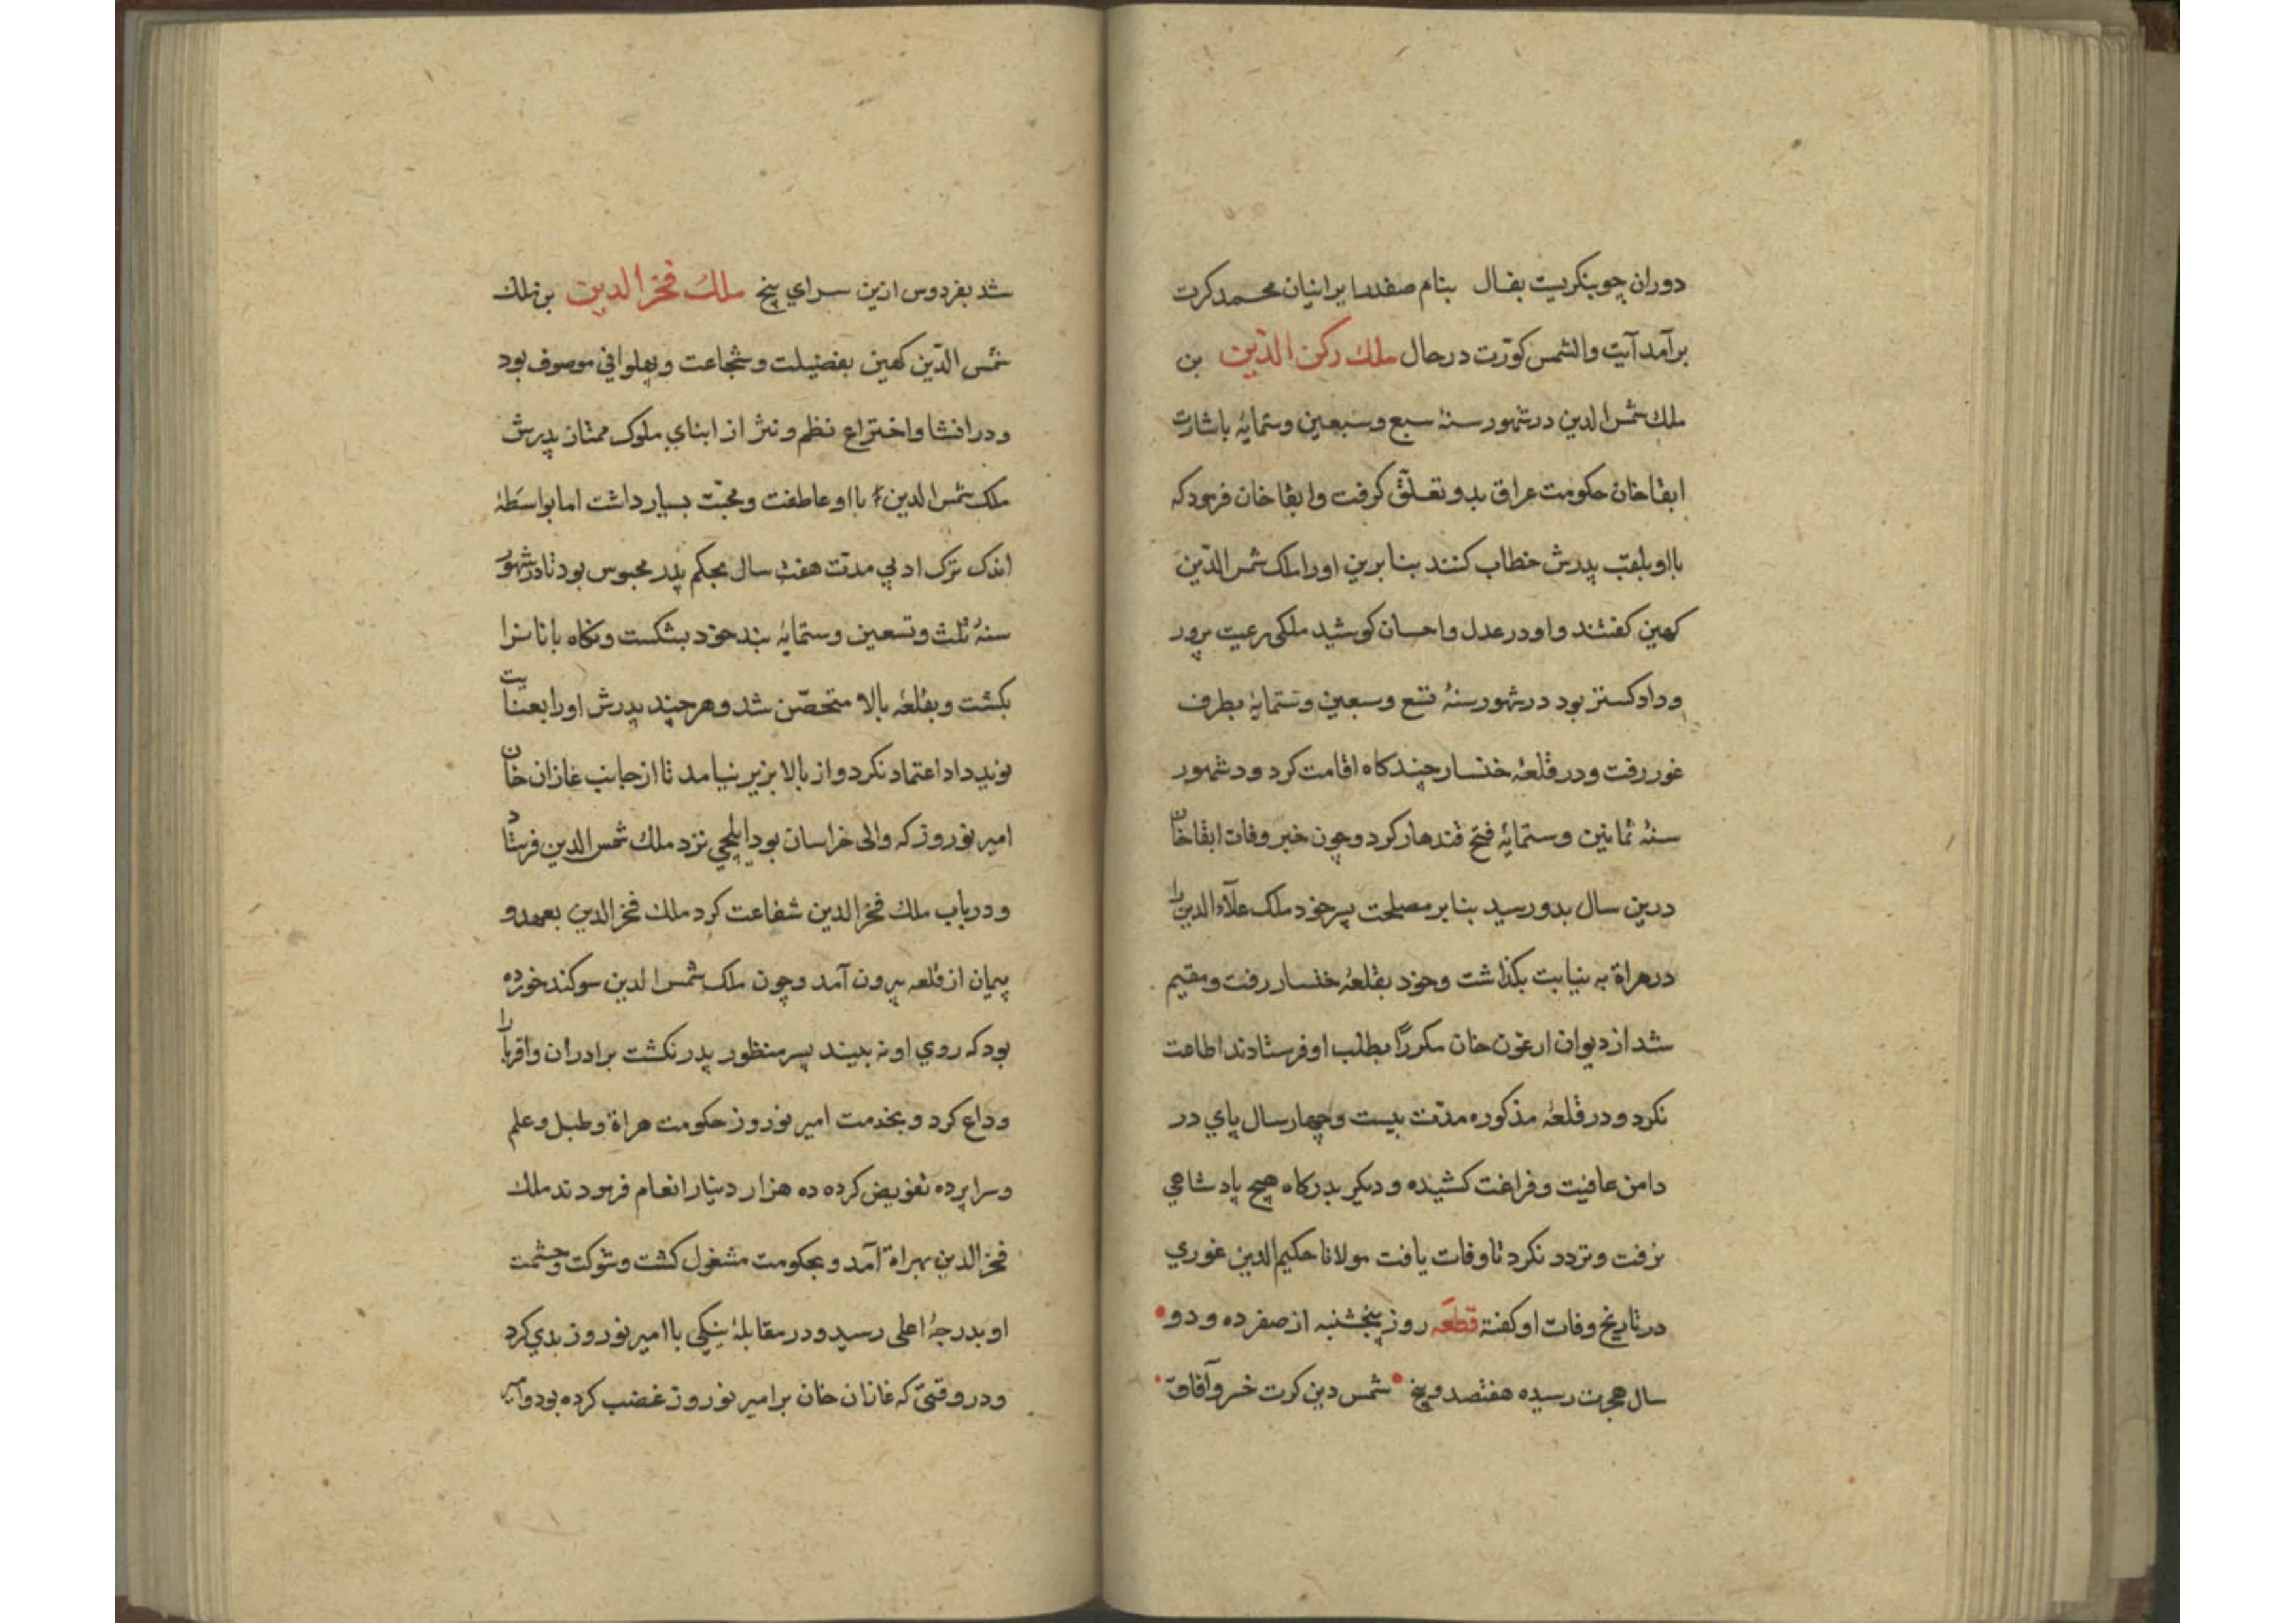 دوران چو بنکریست بفال بنام صفدر ایرانیان محمد کرت
برآمد آیت والشمس کورت در حال ملك رکن الدین بن
ملك شمس الدین در شهور سنهٔ سبع و سبعین و ستمایهٔ باشارت
ابقاخان حکومت عراق بدو تعلّق کرفت و ابقا خان فرمود که
بااو بلقب پدرش خطاب کنند بنابرین او را ملک شمس الدّین
کهین کفتند و او در عدل و احسان کوشید ملکی رعیت پرور
و داد کستر بود در شهور سنهٔ تسع و سبعین و ستمایهٔ بطرف
غور رفت و در قلعهٔ خنسار چند کاه اقامت کرد و در شهور
سنهٔ ثمانین و ستمایهٔ فتح قندهار کرد و چون خبر وفات ابقا خان
درین سال بدو رسید بنابر مصلحت پسر خود ملک علآء الدین را
در هراة به نیابت بکذاشت و خود بقلعهٔ خنسار رفت و مقیم
شد از دیوان ارغون خان مکرراً بطلب او فرستادند اطاعت
نکرد و در قلعهٔ مذکوره مدّت بیست و چهار سال پای در
دامن عافیت و فراغت کشیده و دیکر بدرکاه هیچ پادشاهی
نرفت و تردد نکرد تا وفات یافت مولانا حکیم الدین غوری
در تاریخ وفات او کفتة قطعَه روز پنجشنبه از صفر ده و دو
سال هجرت رسیده هفتصد و پنج شمس دین کرت خسرو آفاق
شد بفردوس ازین سرای پنج ملك فخر الدین بن ملك
شمس الدّین کهین بفضیلت و شجاعت و پهلوانی موصوف بود
و در انشا و اختراع نظم و نثر از ابنای ملوک ممتاز پدرش
ملک شمس الدین بااو عاطفت و محبّت بسیار داشت اما بواسَطهٔ
اندک ترک ادبی مدت هفت سال بحکم پدر محبوس بود تا در شهور
سنهٔ ثلث و تسعین و ستمایهٔ بند خود بشکست و نکاه بانانرا
بکشت و بقلعهٔ بالا متحصّن شد و هر چند پدرش او را بعنایت
نوید داد اعتماد نکرد و از بالا بزیر نیامد تا از جانب غازان خان
امیر نوروز که والی خراسان بود ایلچی نزد ملك شمس الدین فرستاد
و در باب ملك فخر الدین شفاعت کرد ملك فخر الدین بعهد و
پیمان از قلعه بیرون آمد و چون ملک شمس الدین سوکند خورده
بود که روی او نه بیند پسر منظور پدر نکشت برادران و اقربا را
وداع کرد و بخدمت امیر نوروز حکومت هراة و طبل و علم
و سراپرده تفویض کرده ده هزار دینار انعام فرمودند ملك
فخر الدین بهراة آمد و بحکومت مشغول کشت و شوکت و حشمت
او بدرجهٔ اعلی رسید و در مقابلهٔ نیکی باامیر نوروز بدی کرد
و در وقتی که غازان خان بر امیر نوروز غضب کرده بود و امیر